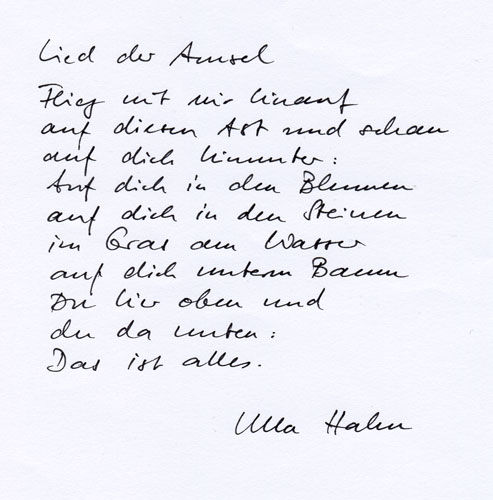 Lied der Amsel
Flieg mit mir hinauf
auf diesen Ast und schau
auf dich hinunter:
Auf dich in den Blumen
auf dich in den Steinen
im Gras am Wasser
auf dich unterm Baum
Du hier oben und
du da unten:
Das ist alles.
Ulla Hahn